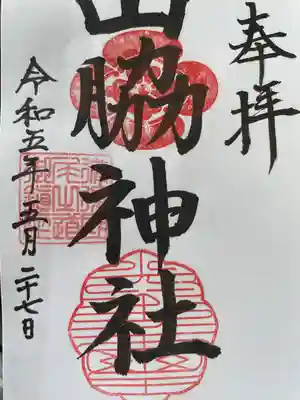 奉拝
山脇神社
令和五年五月二十七日